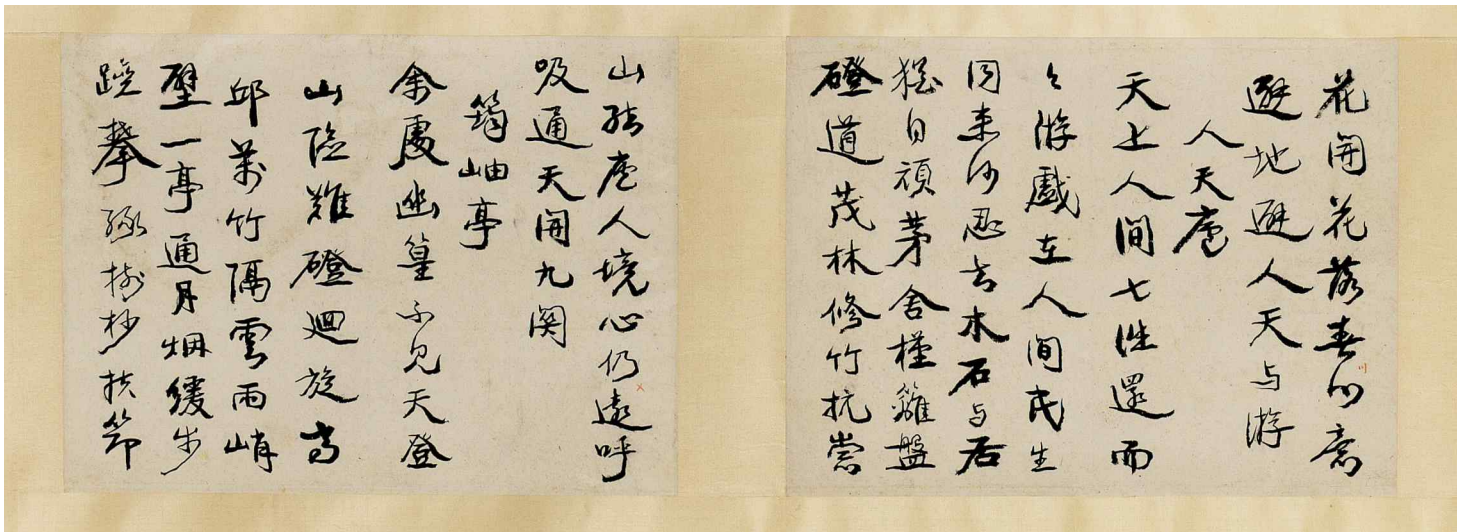 花開花落春
避地避人天与游
人天庵
天上人間七往還而
今游戲在人間民生
同來何忍去木石与居
猶自頑茅舍槿籬盤
磴道茂林修竹抗崇
山結庵人境心仍遠呼
吸通天開九関
筠岫亭
余處幽篁不見天登
山險難磴迴旋高
邱萬竹隔雲雨峭
壁一亭通月烟緩步
蹺攀緣樹杪扶筇